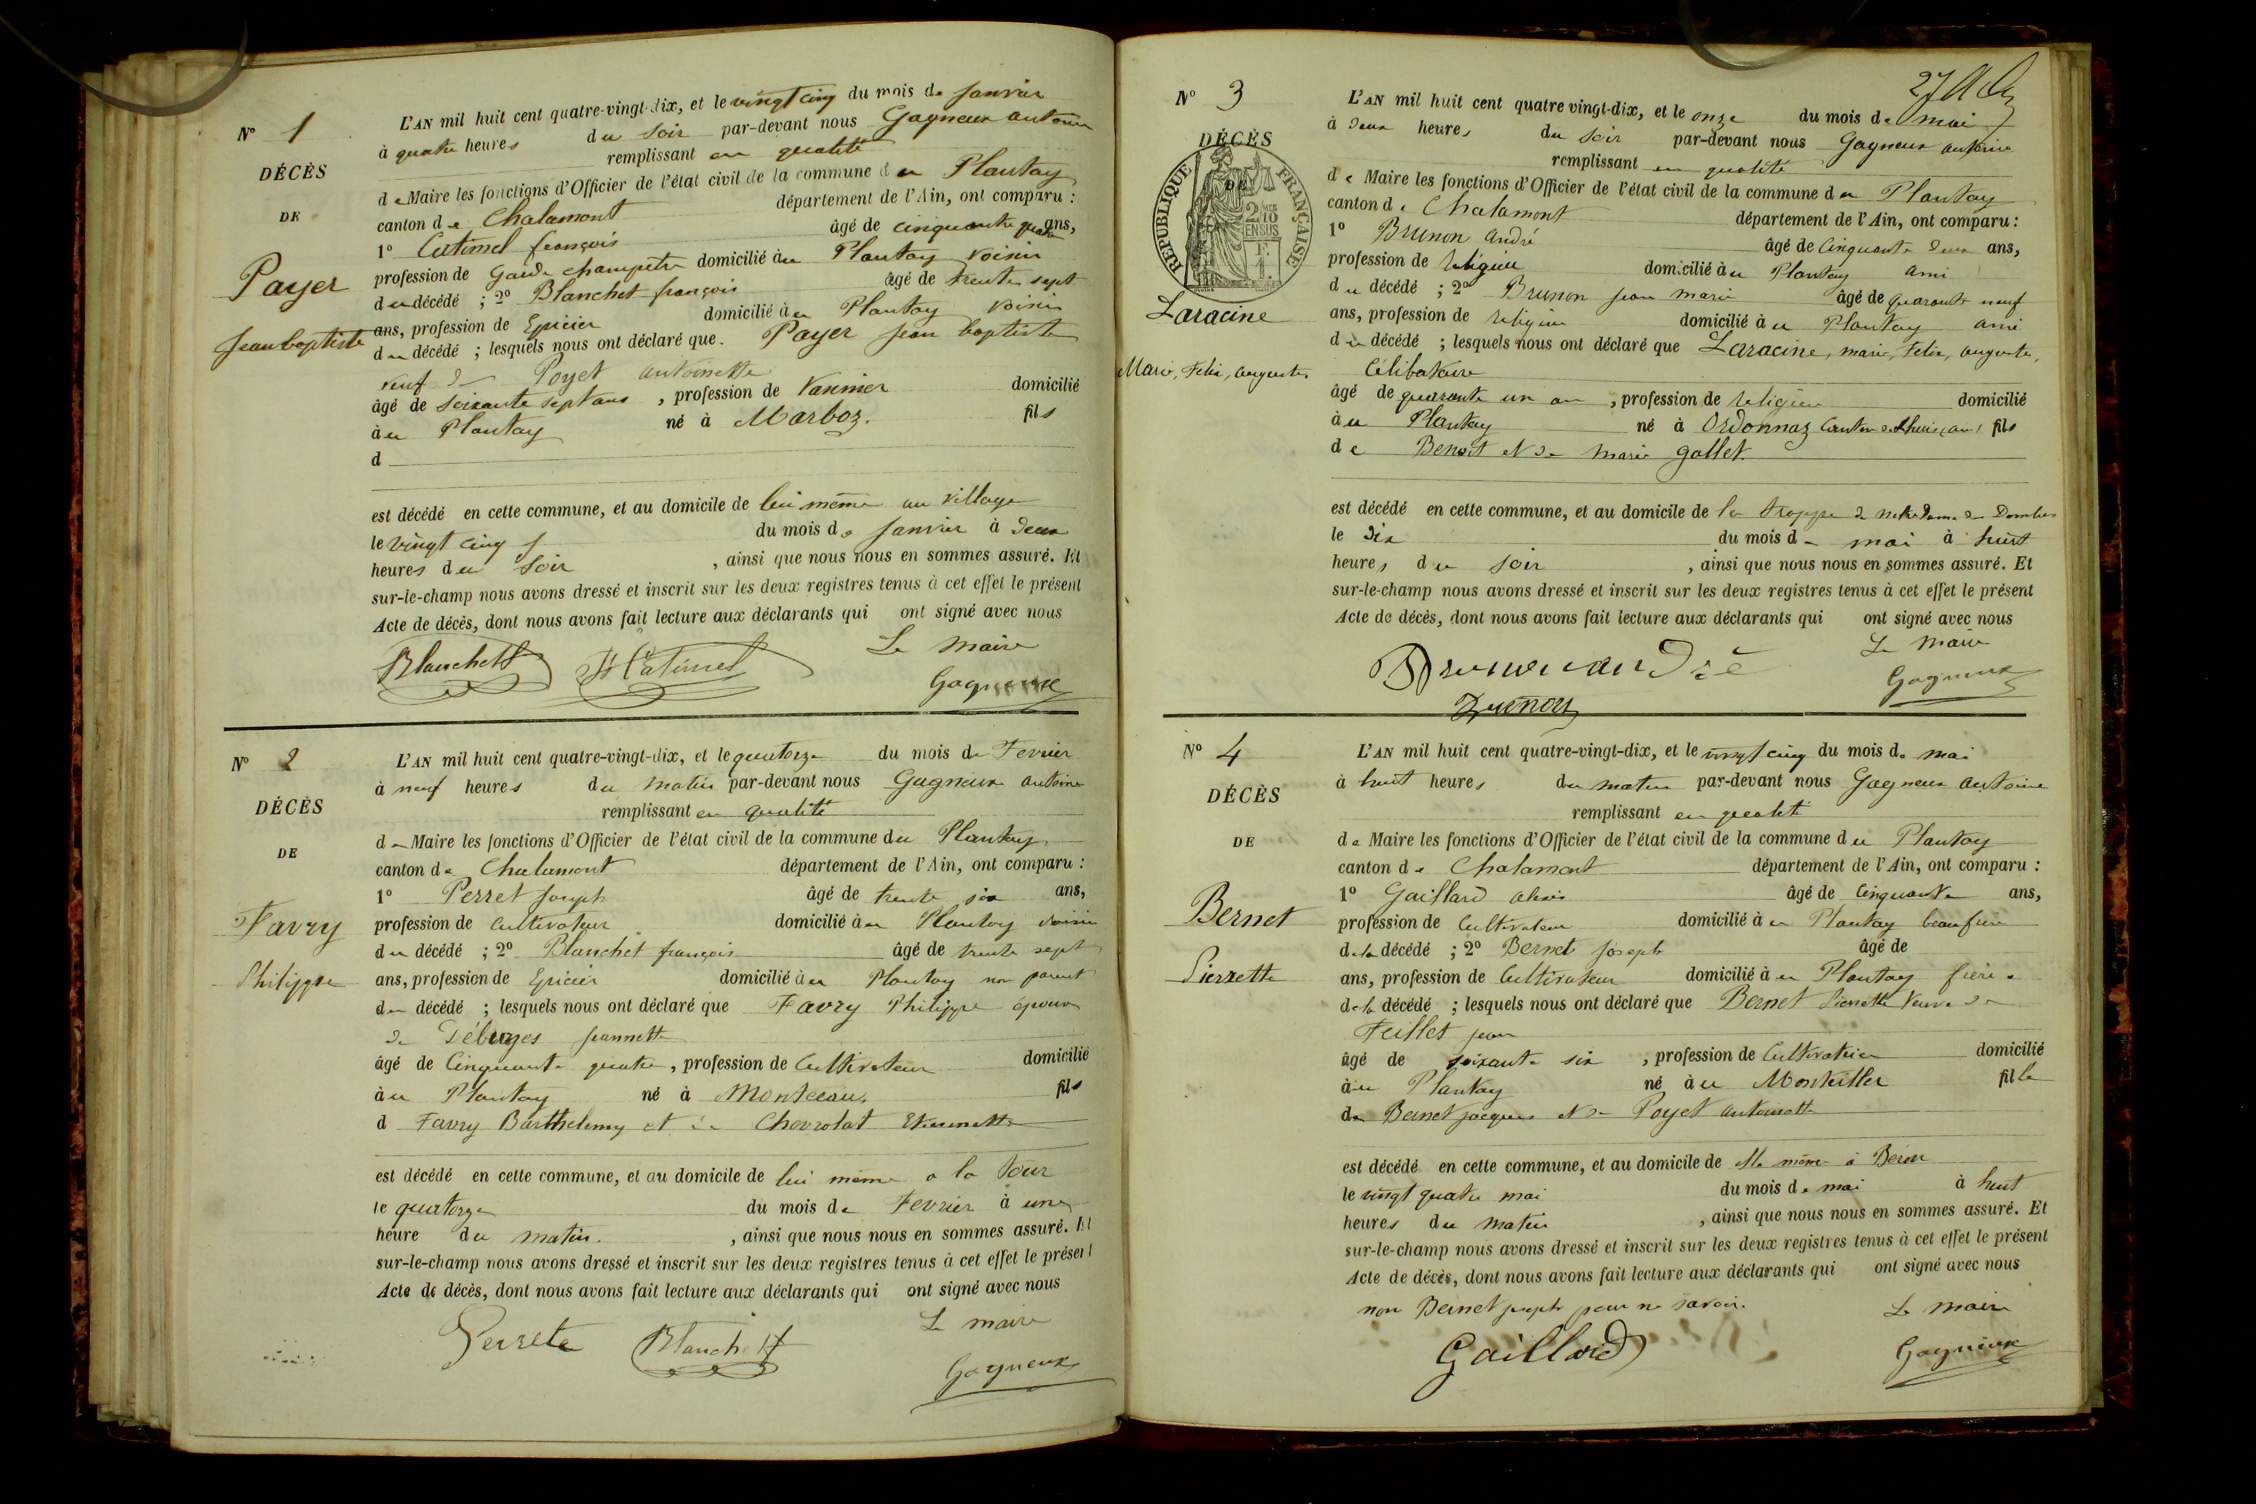 N° 1
DÉCÈS
DE
Payer
Jean baptiste
L'AN mil huit cent quatre-vingt-dix, et le vingt cinq du mois de Janvier
à quatre heures du soir par-devant nous Gagneux antoine
remplissant en qualité
de Maire les fonctions d'Officier de l'état civil de la commune du Plantay
canton de Chalamont département de l'Ain, ont comparu :
1° Catimel françois âgé de cinquante quatre ans,
profession de Garde champêtre domicilié au Plantay voisin
du décédé ; 2° Blanchet françois âgé de trente sept
ans, profession de Epicier domicilié au Plantay voisin
du décédé ; lesquels nous ont déclaré que Payer Jean baptiste
veuf de Poyet antoinette
âgé de soixante sept ans, profession de Vannier domicilié
au Plantay né à Marboz. fils
d
est décédé en cette commune, et au domicile de lui même au village
le vingt cinq du mois de Janvier à deux
heures du soir, ainsi que nous nous en sommes assuré. Et
sur-le-champ nous avons dressé et inscrit sur les deux registres tenus à cet effet le présent
Acte de décès, dont nous avons fait lecture aux déclarants qui ont signé avec nous
Le maire
Blanchet Catimel Gagneux
N° 2
DÉCÈS
DE
Favry
Philippe
L'AN mil huit cent quatre-vingt-dix, et le quatorze du mois de Fevrier
à neuf heures du matin par-devant nous Gagneux antoine
remplissant en qualité
de Maire les fonctions d'Officier de l'état civil de la commune du Plantay
canton de Chalamont département de l'Ain, ont comparu :
1° Perret Joseph âgé de trente six ans,
profession de cultivateur domicilié au Plantay voisin
du décédé ; 2° Blanchet françois âgé de trente sept
ans, profession de Epicier domicilié au Plantay non parent
du décédé ; lesquels nous ont déclaré que Favry Philippe époux
de Jeannette
âgé de Cinquante quatre, profession de Cultivateur domicilié
au Plantay né à Monteeau. fils
d Favry Barthelemy et de Chevrolat Etiennette
est décédé en cette commune, et au domicile de lui même a la Tour
le quatorze du mois de Fevrier à une
heure du matin., ainsi que nous nous en sommes assuré. Et
sur-le-champ nous avons dressé et inscrit sur les deux registres tenus à cet effet le présent
Acte de décès, dont nous avons fait lecture aux déclarants qui ont signé avec nous
Le maire
Perret Blanchet Gagneux
27
N° 3
DÉCÈS
DE
RÉPUBLIQUE FRANÇAISE
2/10 EN SUS
Laracine
Marie, Felix, auguste,
L'AN mil huit cent quatre vingt-dix, et le onze du mois de mai
à deux heures du soir par-devant nous Gagneux antoine
remplissant en qualité
de Maire les fonctions d'Officier de l'état civil de la commune du Plantay
canton de Chalamont département de l'Ain, ont comparu :
1° Brunon andré âgé de Cinquante deux ans,
profession de religieux domicilié au Plantay ami
du décédé ; 2° Brunon jean marie âgé de quarante neuf
ans, profession de religieux domicilié au Plantay ami
du décédé ; lesquels nous ont déclaré que Laracine, marie, Felix, auguste,
Célibataire
âgé de quarante un an, profession de religieux domicilié
au Plantay né à Ordonnaz Canton de Lhuis (ain) fils
de Benoit et de marie gallet
est décédé en cette commune, et au domicile de la trappe de notre dame de Dombes
le dix du mois de mai à huit
heures du soir, ainsi que nous nous en sommes assuré. Et
sur-le-champ nous avons dressé et inscrit sur les deux registres tenus à cet effet le présent
Acte de décès, dont nous avons fait lecture aux déclarants qui ont signé avec nous
Le maire
Brunon andré Gagneux
Brunon
N° 4
DÉCÈS
DE
Bernet
Pierrette
L'AN mil huit cent quatre-vingt-dix, et le vingt cinq du mois de mai
à huit heures du matin par-devant nous Gagneux antoine
remplissant en qualité
de Maire les fonctions d'Officier de l'état civil de la commune du Plantay
canton de Chalamont département de l'Ain, ont comparu :
1° Gaillard alexis âgé de Cinquante ans,
profession de Cultivateur domicilié au Plantay beau frère
de la décédé ; 2° Bernet Joseph âgé de
ans, profession de Cultivateur domicilié au Plantay frère
de la décédé ; lesquels nous ont déclaré que Bernet Pierrette Veuve de
Feillet jean
âgé de soixante six, profession de Cultivatrice domicilié
au Plantay né au Montellier fille
de Bernet jacques et de Poyet antoinette
est décédé en cette commune, et au domicile de elle même à
le vingt quatre mai du mois de mai à huit
heures du matin, ainsi que nous nous en sommes assuré. Et
sur-le-champ nous avons dressé et inscrit sur les deux registres tenus à cet effet le présent
Acte de décès, dont nous avons fait lecture aux déclarants qui ont signé avec nous
non Bernet joseph pour ne savoir. Le maire
Gaillard Gagneux